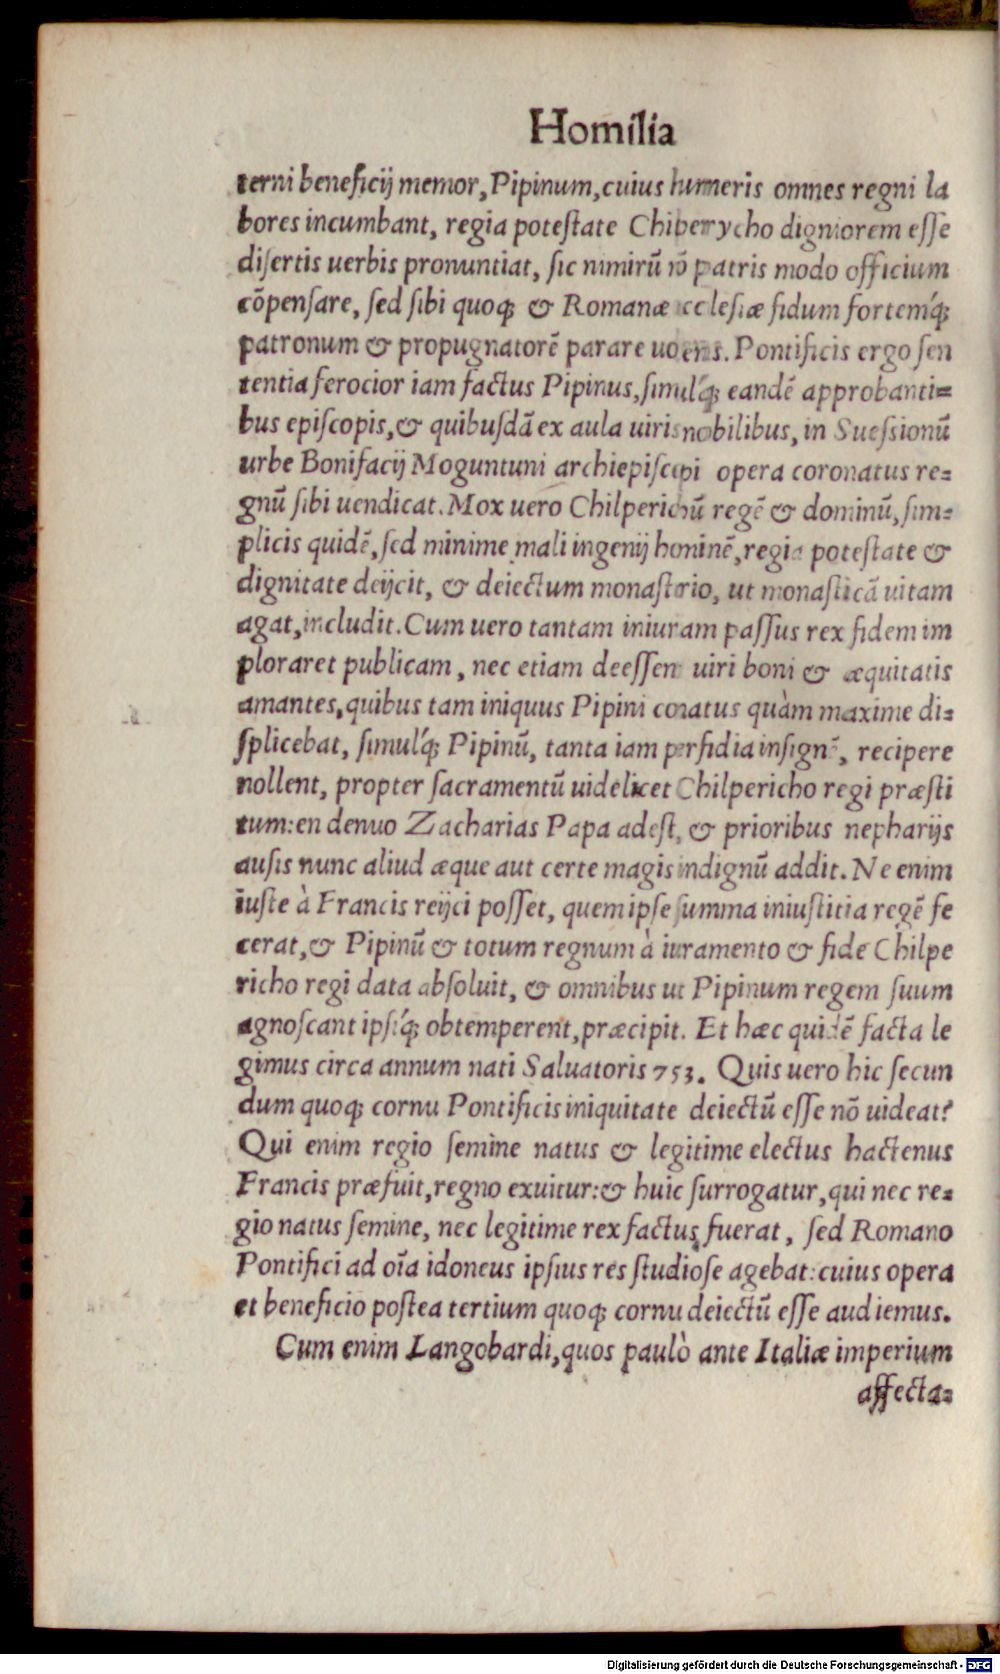 Homilia
terni beneficij memor, Pipinum, cuius humeris omnes regni la
bores incumbant, regia poteſtate Chilperycho digniorem eſſe
diſertis uerbis pronuntiat, ſic nimirũ nõ patris modo officium
cõpenſare, ſed ſibi quoq; & Romanæ eccleſiæ fidum fortemq́;
patronum & propugnatorẽ parare uolens. Pontificis ergo ſen
tentia ferocior iam factus Pipinus, ſimulq́; eandẽ approbanti=
bus epiſcopis, & quibuſdã ex aula uiris nobilibus, in Sueſsionũ
urbe Bonifacij Moguntini archiepiſcopi opera coronatus re=
gnũ ſibi uendicat. Mox uero Chilperichũ regẽ & dominũ, ſim=
plicis quidẽ, ſed minime mali ingenij hominẽ, regia poteſtate &
dignitate deijcit, & deiectum monaſterio, ut monaſticã uitam
agat, includit. Cum uero tantam iniuram paſſus rex fidem im
ploraret publicam, nec etiam deeſſent uiri boni & æquitatis
amantes, quibus tam iniquus Pipini conatus quàm maxime di=
ſplicebat, ſimulq́; Pipinũ, tanta iam perfidia inſignẽ, recipere
nollent, propter ſacramentũ uidelicet Chilpericho regi præſti
tum: en denuo Zacharias Papa adeſt, & prioribus nepharijs
auſis nunc aliud æque aut certe magis indignũ addit. Ne enim
iuſte à Francis reijci poſſet, quem ipſe ſumma iniuſtitia regẽ fe
cerat, & Pipinũ & totum regnum à iuramento & fide Chilpe
richo regi data abſoluit, & omnibus ut Pipinum regem ſuum
agnoſcant ipſiq́; obtemperent, præcipit. Et hæc quidẽ facta le
gimus circa annum nati Saluatoris 753. Quis uero hic ſecun
dum quoq; cornu Pontificis iniquitate deiectũ eſſe nõ uideat?
Qui enim regio ſemine natus & legitime electus hactenus
Francis præfuit, regno exuitur: & huic ſurrogatur, qui nec re=
gio natus ſemine, nec legitime rex factus fuerat, ſed Romano
Pontifici ad oĩa idoneus ipſius res ſtudioſe agebat: cuius opera
et beneficio poſtea tertium quoq; cornu deiectũ eſſe audiemus.
Cum enim Langobardi, quos paulò ante Italiæ imperium
affecta=
Digitalisierung gefördert durch die Deutsche Forschungsgemeinschaft - DFG